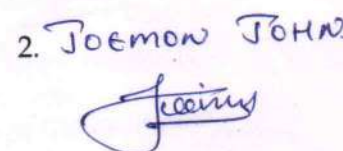 2. JOEMON JOHN